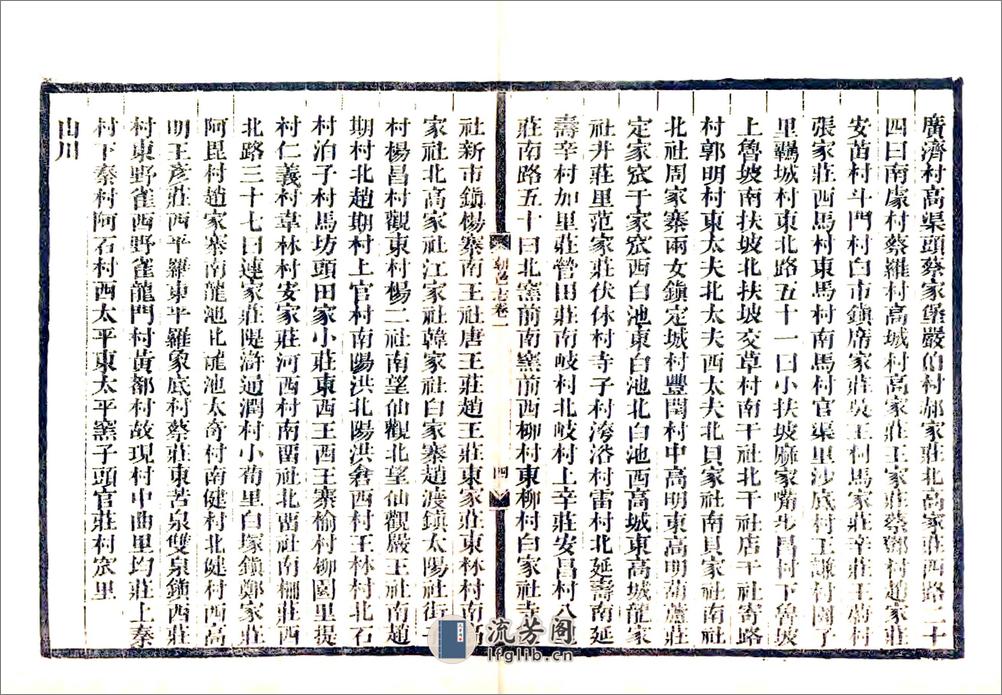 廣濟村高渠頭蔡家堡嚴伯村郝家莊北高家莊西路二十
四曰南處村蔡羅村高城村高家莊王家莊蔡鄧村趙家
安苗村斗門村白市鎮席家莊吳王村馬家莊辛莊王蔚村
張家莊西馬村東馬村南馬村官渠里沙底村王謙村園子
里羇城村東北路五十一曰小扶坡麻家嘴步昌村下魯坡
上魯坡南扶坡北扶坡交草村南干社北干社店干社寄路
村郭明村東太夫北太夫西太夫北貝家社南貝家社南社
北社周家寨兩女鎮定城村豐閏村中高明東高明葫蘆莊
定家窊于家窊西白池東白池北白池西高城東高城龍家
社井莊里范家莊伏休村寺子村洿浴村雷村北延壽南延
壽辛村加里莊營田莊南岐村北岐村上辛莊安昌村八
莊南路五十曰北窯前南窯前西柳村東柳村白家社寺
社新市鎮楊寨南王社唐王莊趙王莊東家莊東林村南高
家社北高家社江家社韓家社白家寨趙渡鎮太陽社街
村楊昌村觀東村楊二社南望仙觀北望仙觀嚴王社南趙
期村北趙期村上官村南陽洪北陽洪倉西村王林村北石
村泊子村馬坊頭田家小莊東西王西王寨榆村柳園里提
村仁義村韋林村安家莊河西村南畱社北畱社南柵莊西
北路三十七曰連家莊隄滸通潤村小荀里白塚鎮鄭家莊
阿毘村趙家寨南龍池北龍池太奇村南健村北健村西高
明王彥莊西平羅東平羅象底村蔡莊東苦泉雙泉鎮西莊
村東野雀西野雀龍門村黃都村故現村中曲里均莊上秦
村下秦村阿石村西太平東太平窯子頭官莊村窊里
山川
朝邑志卷二
四
流芳阁
lfglib.cn